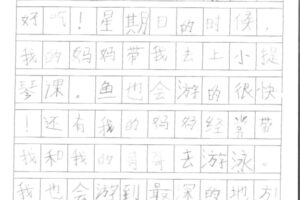 好吃！星期日的时候，
我的妈妈带我去上小提
琴课。鱼也会游的很快
！还有我的妈妈经常带
我和我的哥哥去游泳。
我也会游到最深的地方